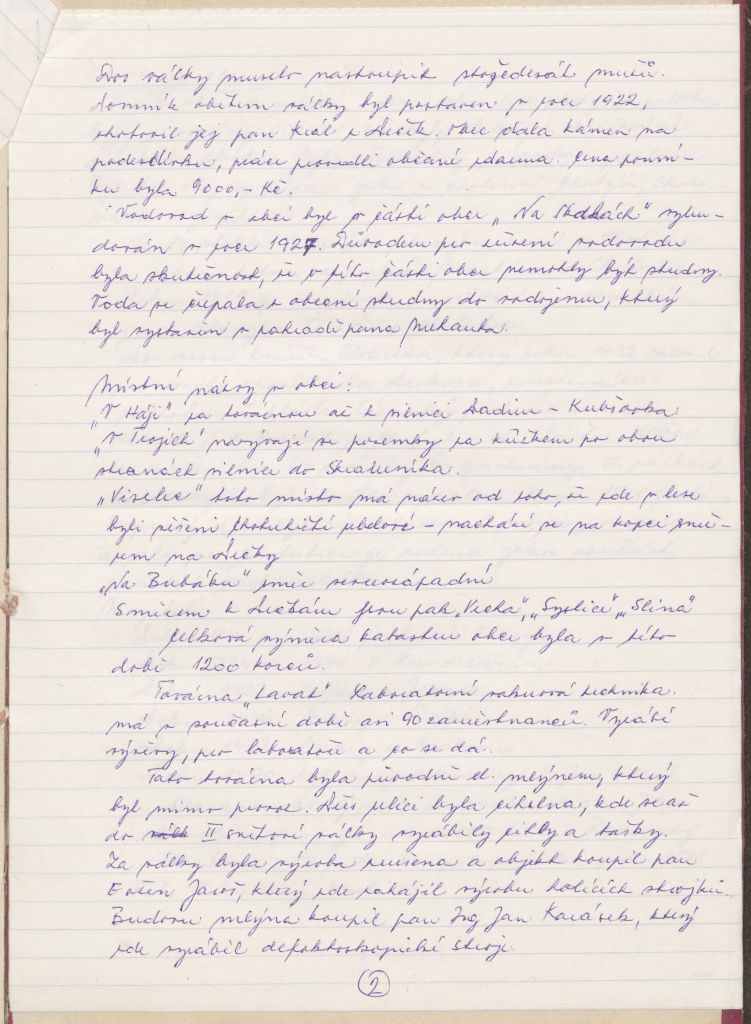 Do války muselo nastoupit stošedesát mužů.
Pomník obětem války byl postaven v roce 1922,
zhotovil jej pan Král z Lučík. Obec dala kámen na
podezdívku, práce provedli občané zdarma. Cena pomní-
ku byla 9000,- Kč.
Vodovod v obci byl v části obce „Na Skalkách" vybu-
dován v roce 1927. Důvodem pro zřízení vodovodu
byla skutečnost, že v této části obce nemohly být studny.
Voda se čerpala z obecní studny do vodojemu, který
byl vystaven v zahradě pana Michauka.
Místní názvy v obci:
„V Háji" za továrnou až k silnici Dadim – Kubšovka
„V Trojích" nazývají se pozemky za křížkem po obou
stranách silnice do Skalníka.
„Viselec" toto místo má název od toho, že zde v lese
byli věšeni zlodějové – nachází se na kopci smě-
rem na Lučky
„Na Bubáku" směr severozápadní
Směrem k Lučkám jsou pak „Vrcha", „Syslice", „Slina"
Celková výměra katastru obce byla v této
době 1200 korců.
Továrna „Lavat" Laboratorní vakuová technika.
má v současné době asi 90 zaměstnanců. Vyrábí
vývěvy, pro laboratoře a co se dá.
Tato továrna byla původně el. mlýnem, který
byl mimo provoz. Přes ulici byla cihelna, kde se až
do války II světové války vyráběly cihly a tašky.
Za války byla výroba zrušena a objekt koupil pan
Evžen Jaroš, který zde zahájil výrobu holících strojků.
Budovu mlýna koupil pan Ing Jan Karásek, který
zde vyráběl defektoskopické stroje.
2